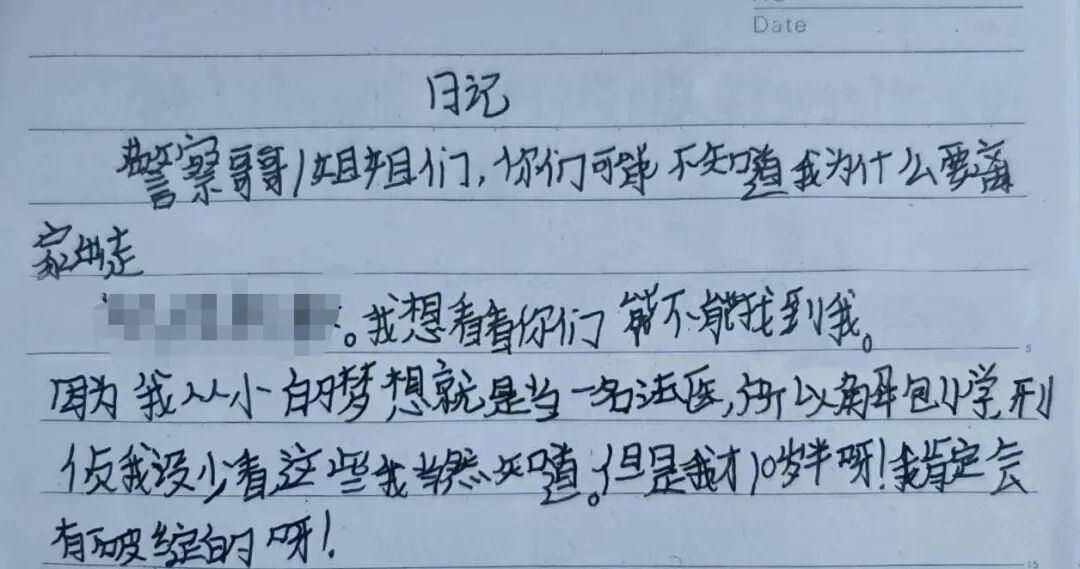 Date
日记
警察哥哥/姐姐们,你们可能不知道我为什么要离
家出走
。我想看看你们能不能找到我。
因为我从小的梦想就是当一名法医,所以解剖小学刑
侦我没少看,这些我当然知道。但是我才10岁半呀!我肯定会
有破绽的呀!
5
15